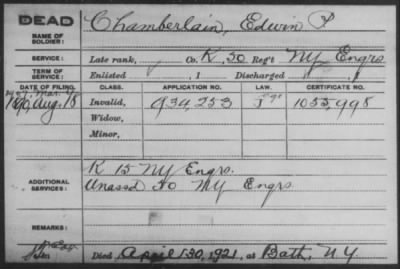 DEAD
NAME OF SOLDIER: Chamberlain, Edwin P
SERVICE: Late rank, Co. K, 50 Reg't NY Engrs
TERM OF SERVICE: Enlisted , 1 Discharged , 1
DATE OF FILING. CLASS. APPLICATION NO. LAW. CERTIFICATE NO.
Aug. 18 Invalid, 934,253 1,055,998
Widow,
Minor,
ADDITIONAL SERVICES: K 15 NY Engrs.
Unassd 50 NY Engrs
REMARKS:
Died April 30, 1921, at Bath, N.Y.